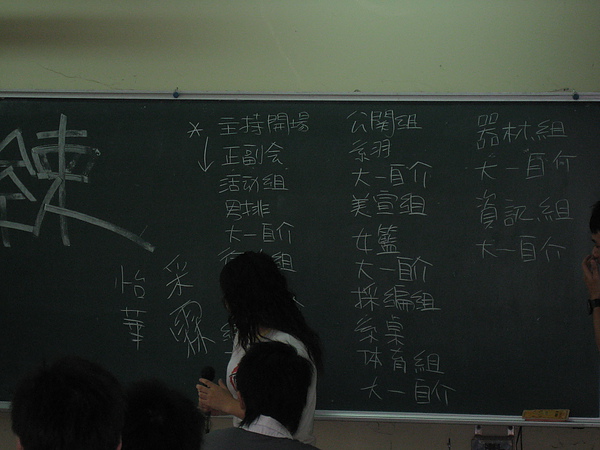 主持開場
正副会
活动組
男排
大一自介
組
公関組
系羽
大一自介
美宣組
女籃
大一自介
採編組
系桌
体育組
大一自介
器材組
大一自介
資訊組
大一自介
怡華
采